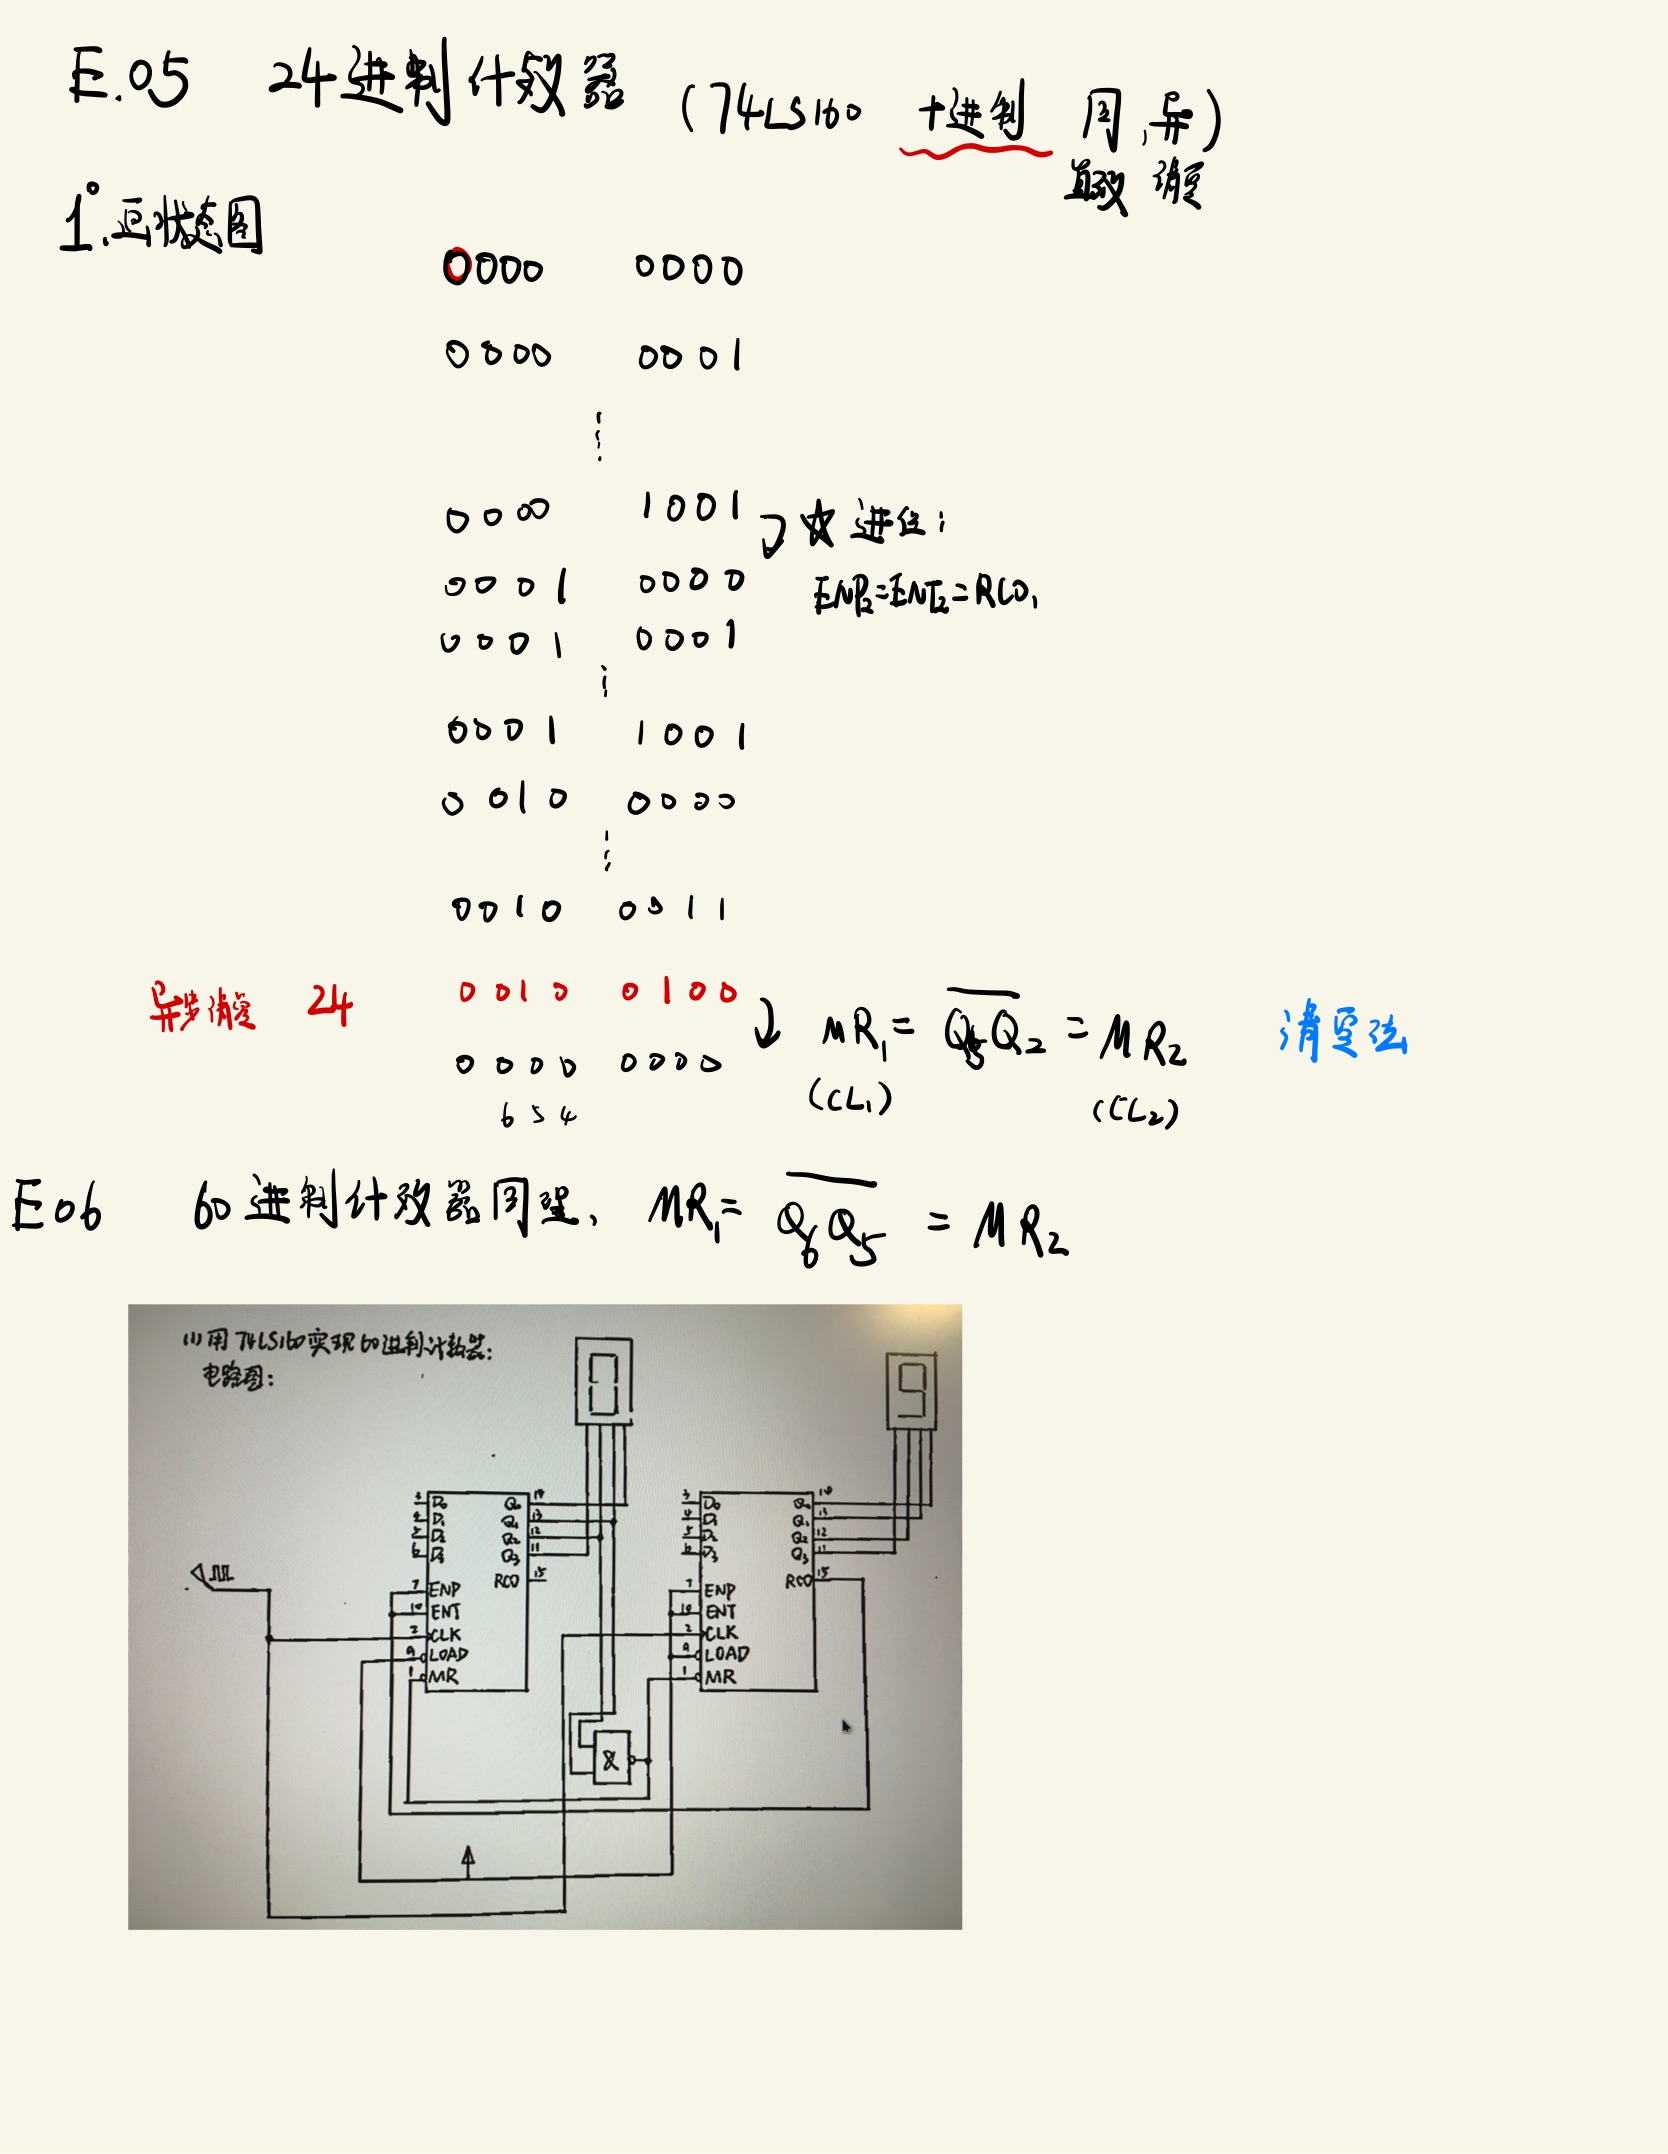 E.05 24进制计数器 (74LS160 十进制 同, 异)
置数 清零
1°. 画状态图
0000 0000
0000 0001
0000 1001 ☆ 进位:
0001 0000 ENP₂=ENT₂=RCO₁
0001 0001
0001 1001
0010 0000
0010 0011
异步清零 24 0010 0100 MR₁ = Q₅Q₂ = MR₂ 清零法
0000 0000 (CL₁) (CL₂)
6 5 4
E06 60进制计数器同理, MR₁= Q₆Q₅ = MR₂
(1)用74LS160实现60进制计数器:
电路图:
0 9
3 D₀ Q₀ 14 3 D₀ Q₀ 14
4 D₁ Q₁ 13 4 D₁ Q₁ 13
5 D₂ Q₂ 12 5 D₂ Q₂ 12
6 D₃ Q₃ 11 6 D₃ Q₃ 11
RCO 15 RCO 15
7 ENP 7 ENP
10 ENT 10 ENT
2 CLK 2 CLK
9 LOAD 9 LOAD
1 MR 1 MR
&